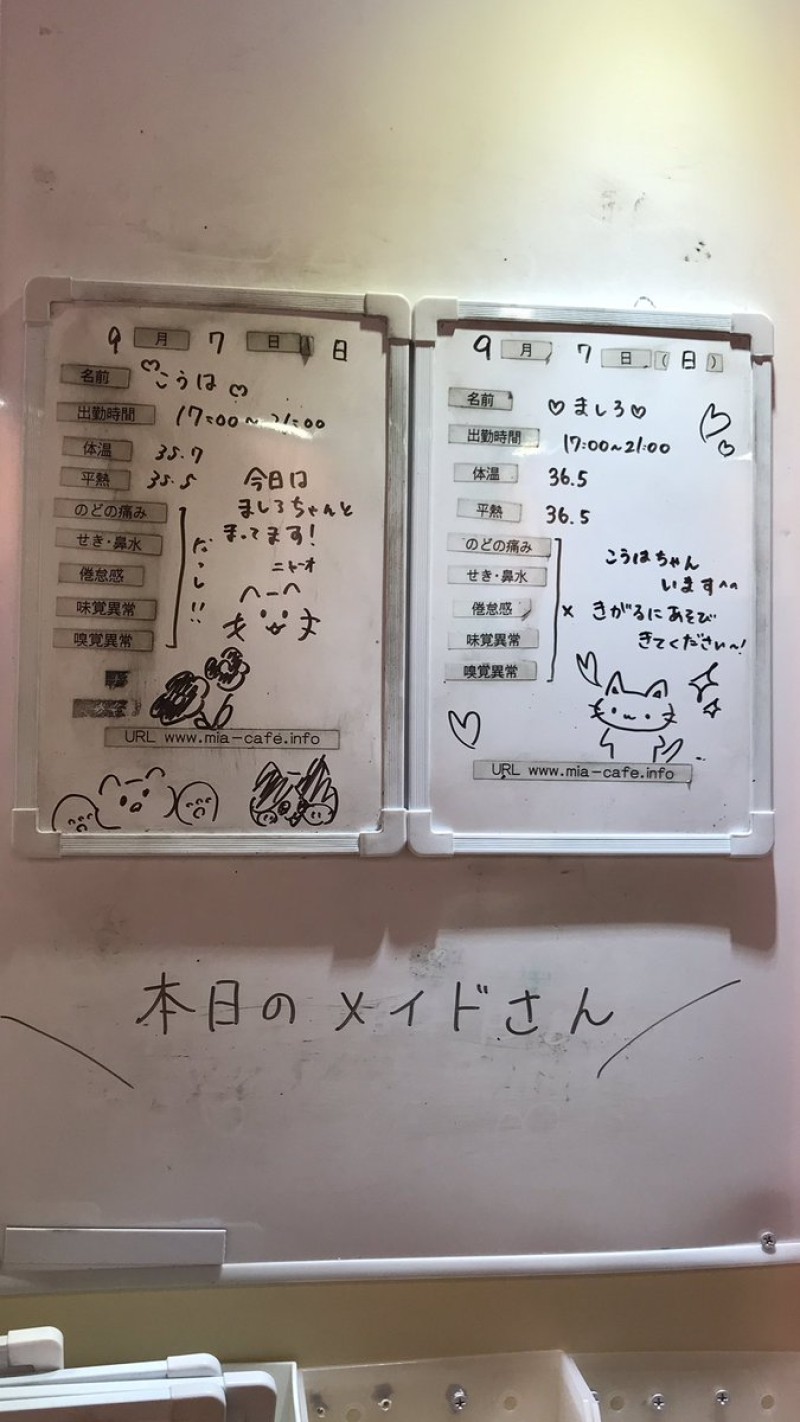 9 月 7 日 日
名前 こうは
出勤時間 17:00~21:00
体温 35.7
平熱 35.5
のどの痛み
せき・鼻水
倦怠感
味覚異常
嗅覚異常
今日は
ましろちゃんと
まってます!
URL www.mia-cafe.info
9 月 7 日 (日)
名前 ♡ましろ♡
出勤時間 17:00~21:00
体温 36.5
平熱 36.5
のどの痛み
せき・鼻水
倦怠感 ×
味覚異常
嗅覚異常
こうはちゃん
います^^
きがるにあそび
きてください~!
URL www.mia-cafe.info
本日のメイドさん